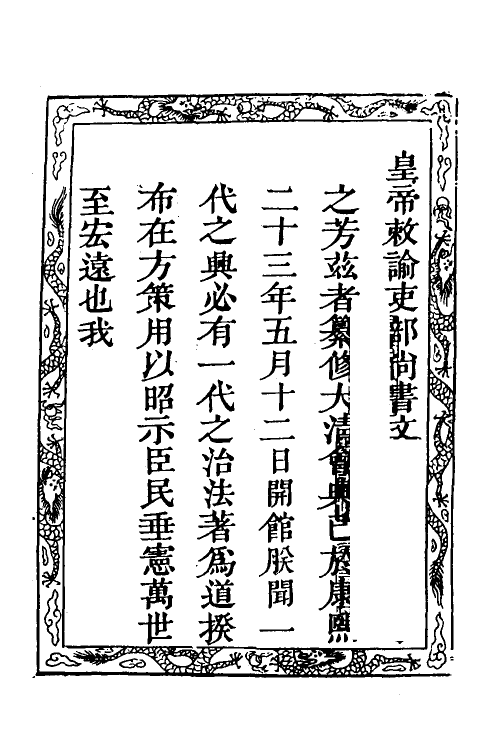 皇帝敕諭吏部尚書文
之芳茲者纂修大清會典已於康熙
二十三年五月十二日開館朕聞一
代之興必有一代之治法著為道揆
布在方策用以昭示臣民垂憲萬世
至宏遠也我